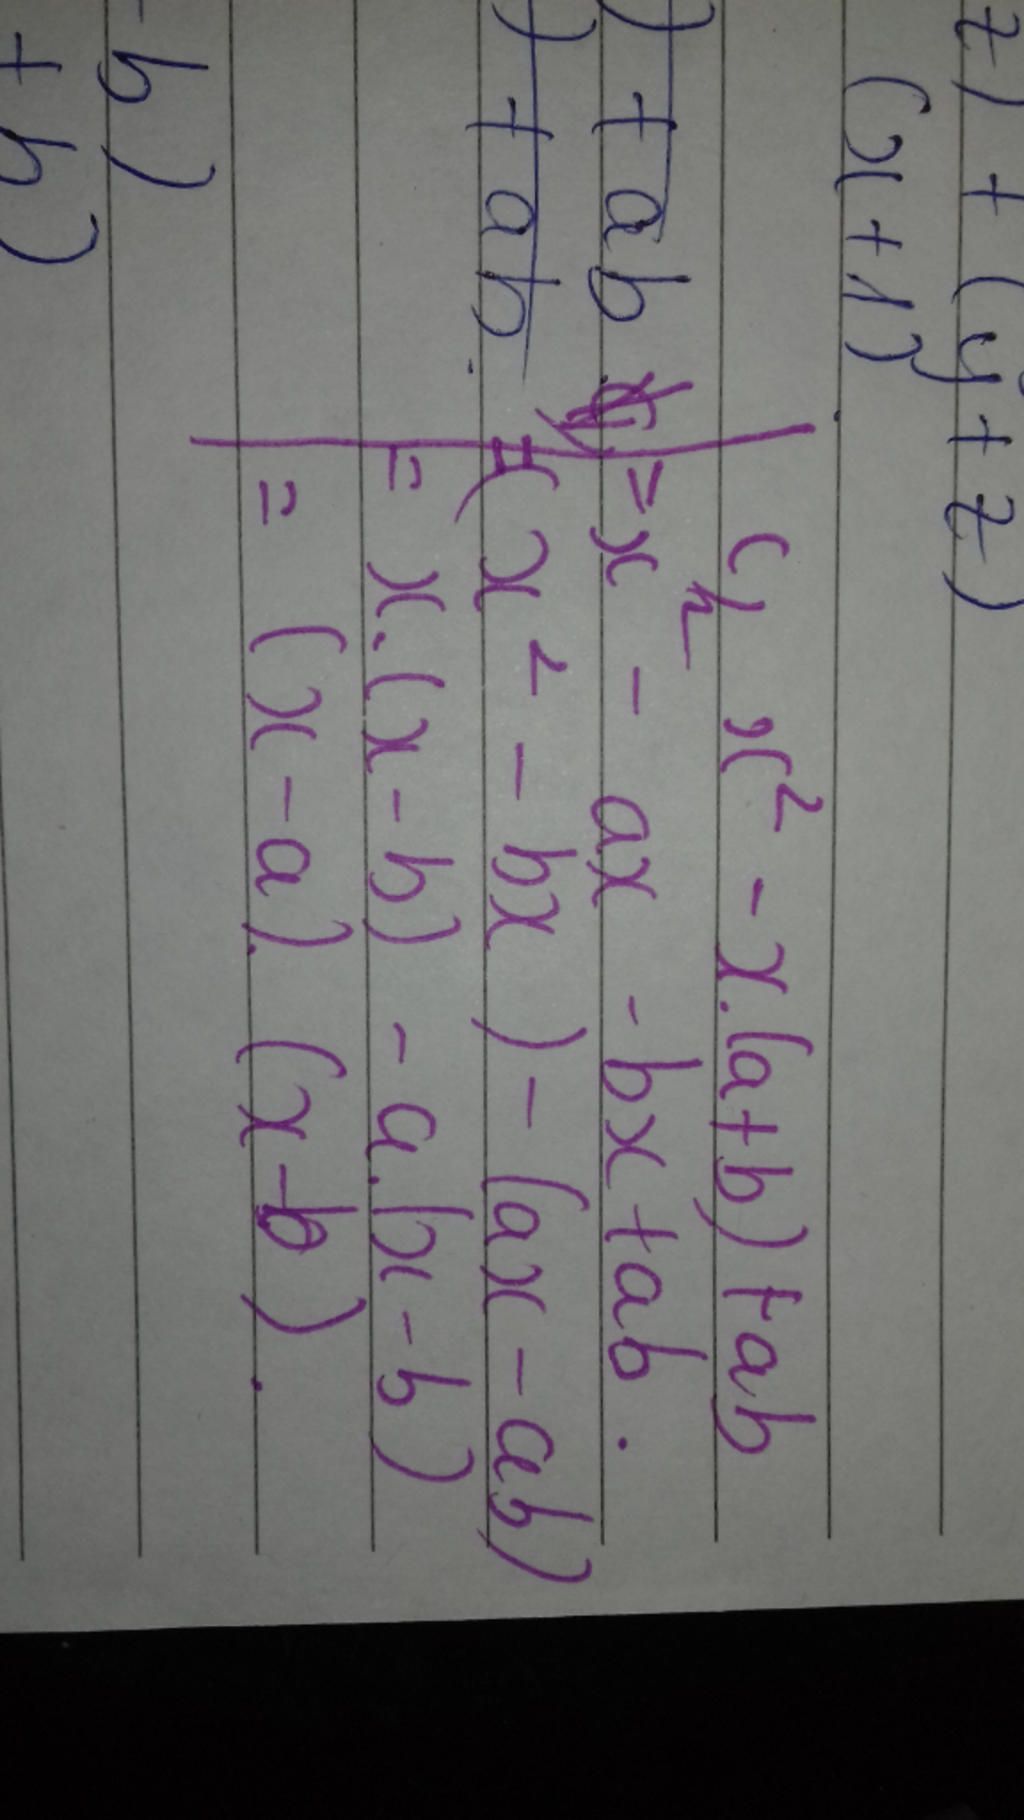 z) + (y + z)
(x + 1)
) + ab
) + ab.
- b)
+ b)
c, x² - x.(a+b) + ab
= x² - ax - bx + ab.
= (x² - bx) - (ax - ab)
= x.(x - b) - a.(x - b)
= (x - a). (x - b).